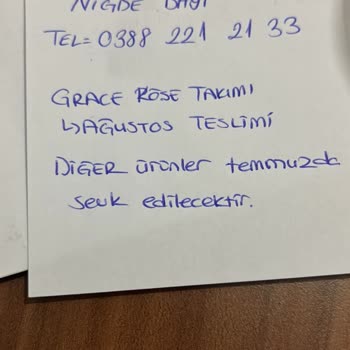 NİĞDE
TEL= 0388 221 21 33
GRACE KÖSE TAKIMI
↳AĞUSTOS TESLİMİ
DİĞER ürünler temmuzda
sevk edilecektir.